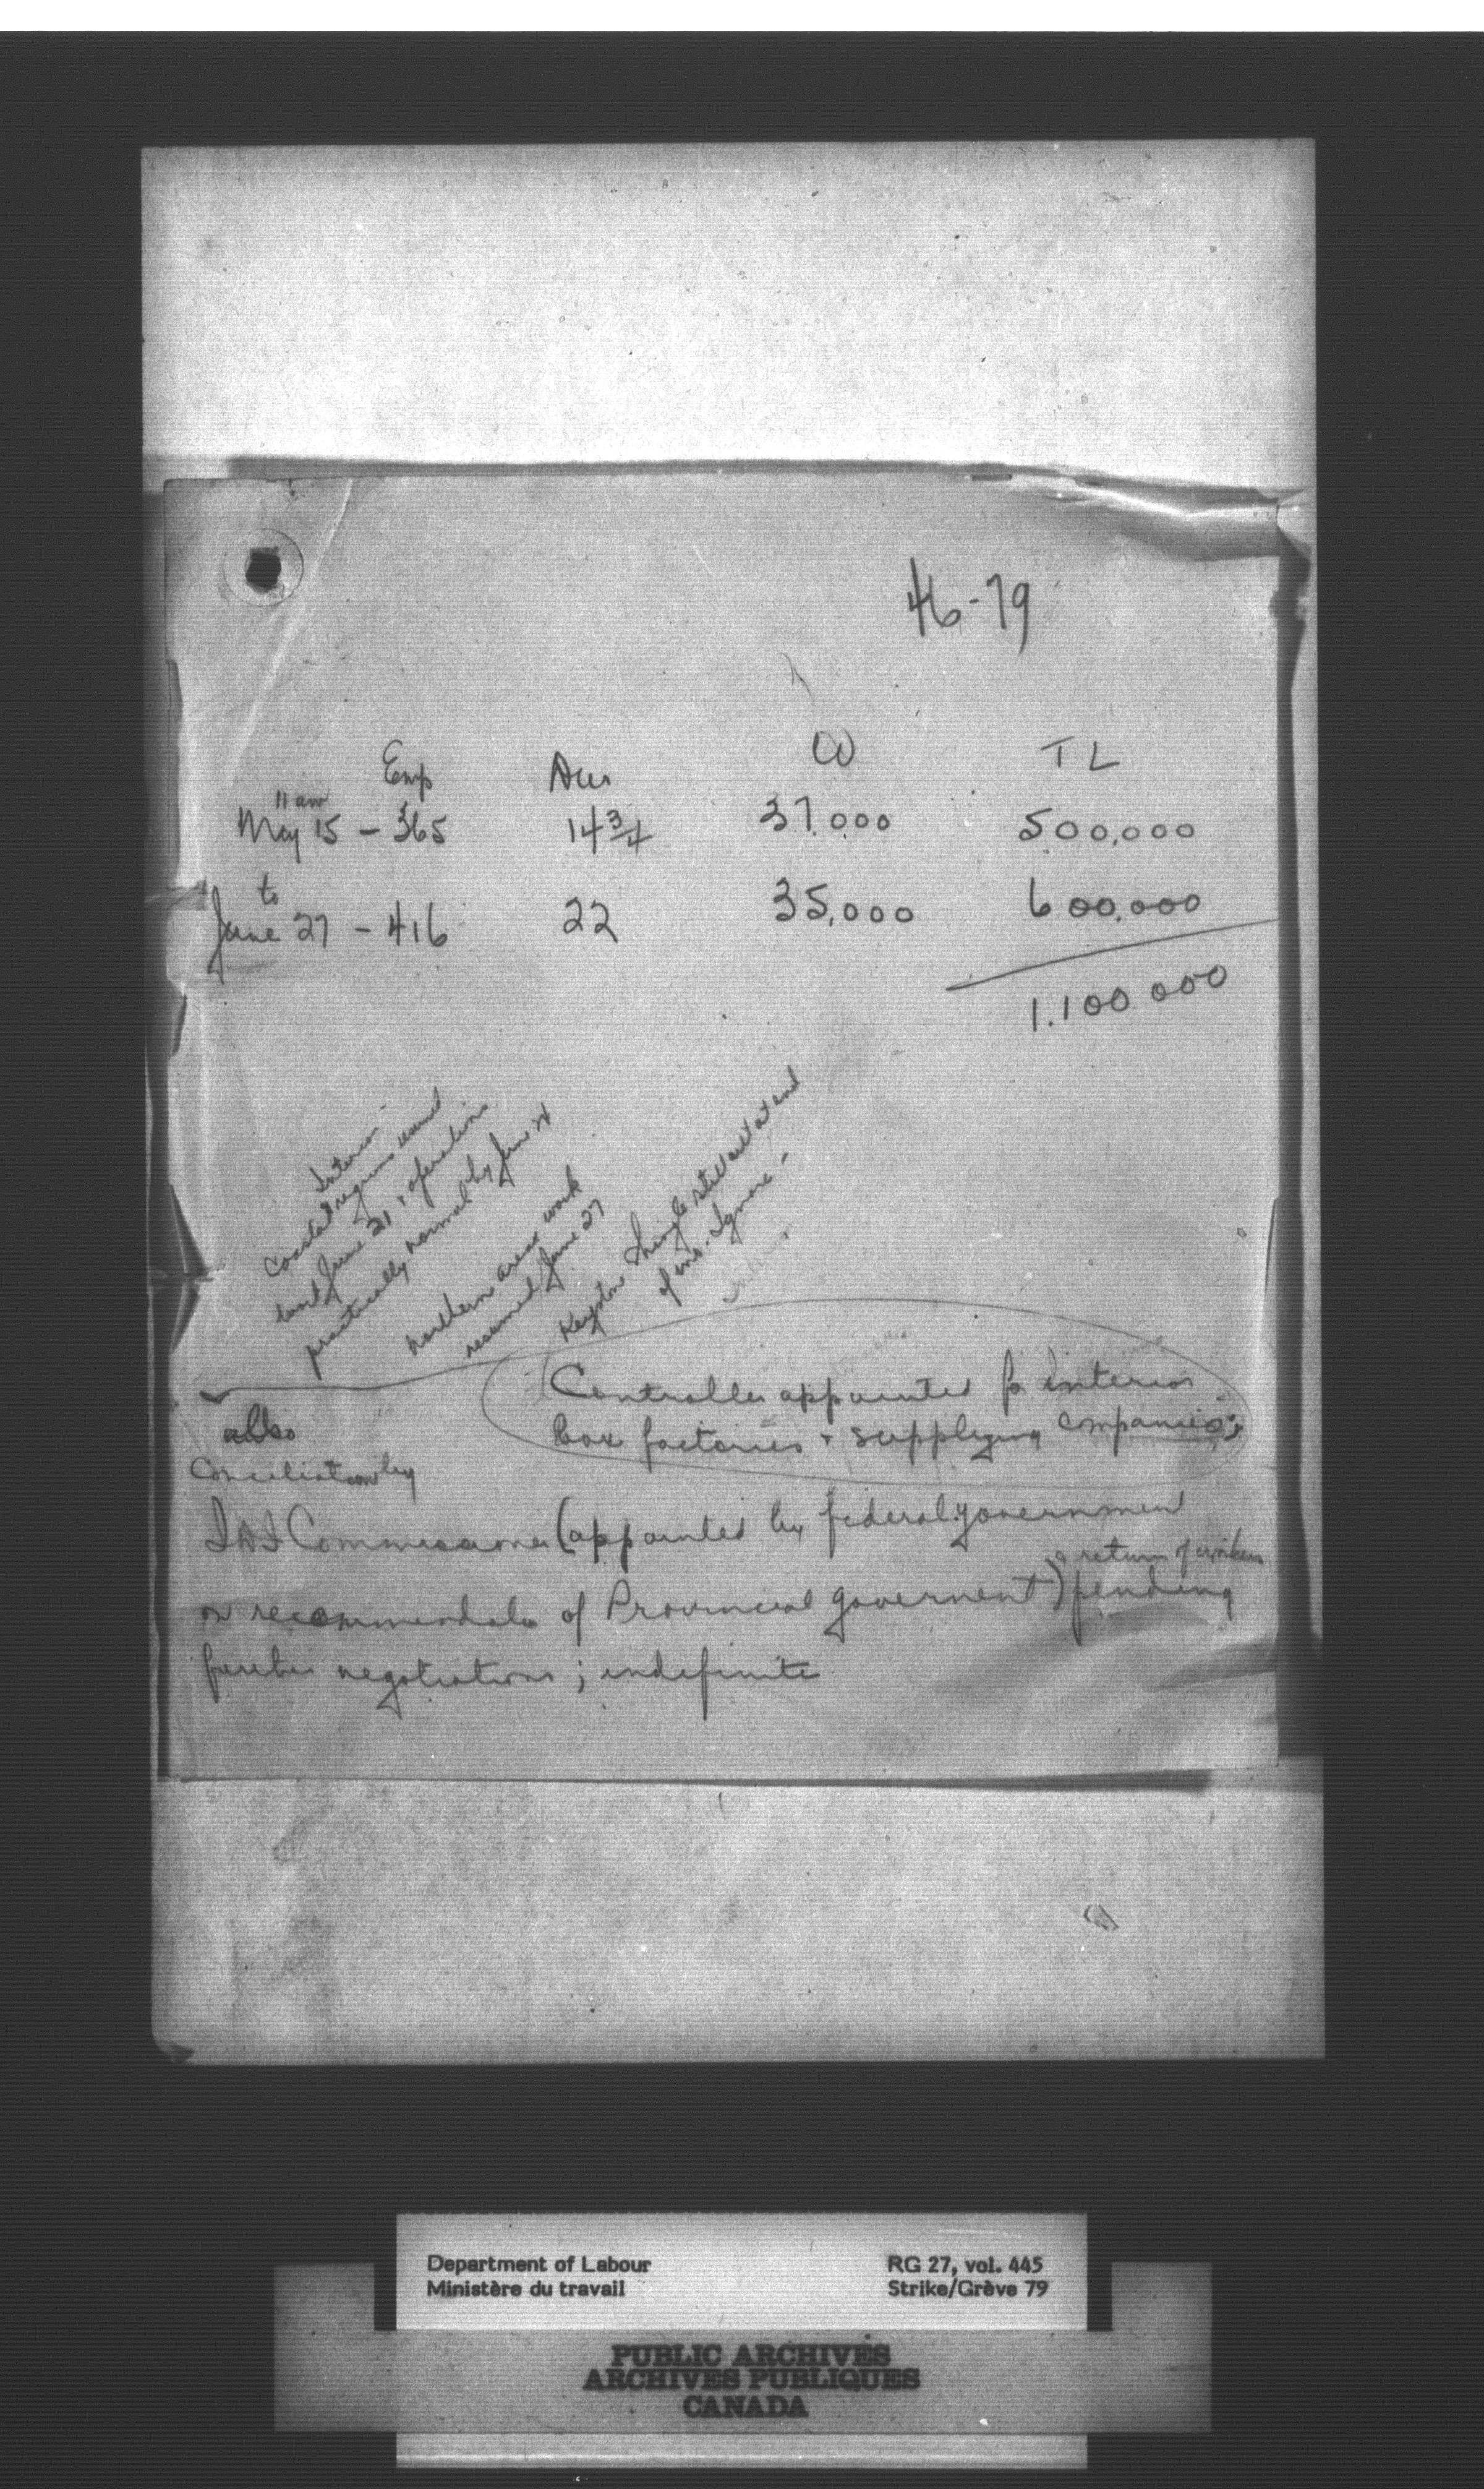 46-79
Emp Dur W T L
11 am
May 15 - 365 14 3/4 37,000 500,000
to
June 27 - 416 22 35,000 600,000
1,100,000
Interior -
coastal regions
June 21, & operations
practically normal by June 24
northern area work
resumed June 27
Keystone Shingle still out at end
of mo. - Ignore -
Controller appointed for interior
box factories & supplying companies;
also
Conciliation by
I D I Commissioner (appointed by federal government
& return of workers
on recommendatn of Provincial government) pending
further negotiations; indefinite
Department of Labour
Ministère du travail
RG 27, vol. 445
Strike/Grève 79
PUBLIC ARCHIVES
ARCHIVES PUBLIQUES
CANADA